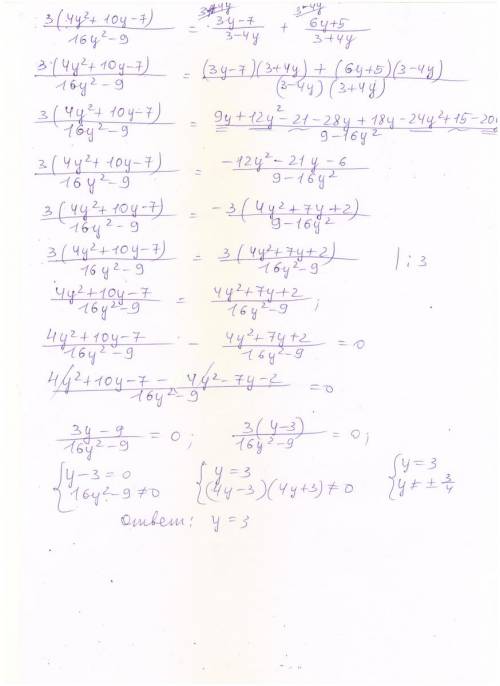 3(4y²+10y-7)/16y²-9 = 3y-7/3-4y + 6y+5/3+4y
3(4y²+10y-7)/16y²-9 = (3y-7)(3+4y)+(6y+5)(3-4y)/(3-4y)(3+4y)
3(4y²+10y-7)/16y²-9 = 9y+12y²-21-28y+18y-24y²+15-20/9-16y²
3(4y²+10y-7)/16y²-9 = -12y²-21y-6/9-16y²
3(4y²+10y-7)/16y²-9 = -3(4y²+7y+2)/9-16y²
3(4y²+10y-7)/16y²-9 = 3(4y²+7y+2)/16y²-9 |:3
4y²+10y-7/16y²-9 = 4y²+7y+2/16y²-9;
4y²+10y-7/16y²-9 - 4y²+7y+2/16y²-9 = 0
4y²+10y-7-4y²-7y-2/16y²-9 = 0
3y-9/16y²-9 = 0; 3(y-3)/16y²-9 = 0;
{y-3=0 {y=3 {y=3
{16y²-9≠0 {(4y-3)(4y+3)≠0 {y≠±3/4
Ответ: y=3